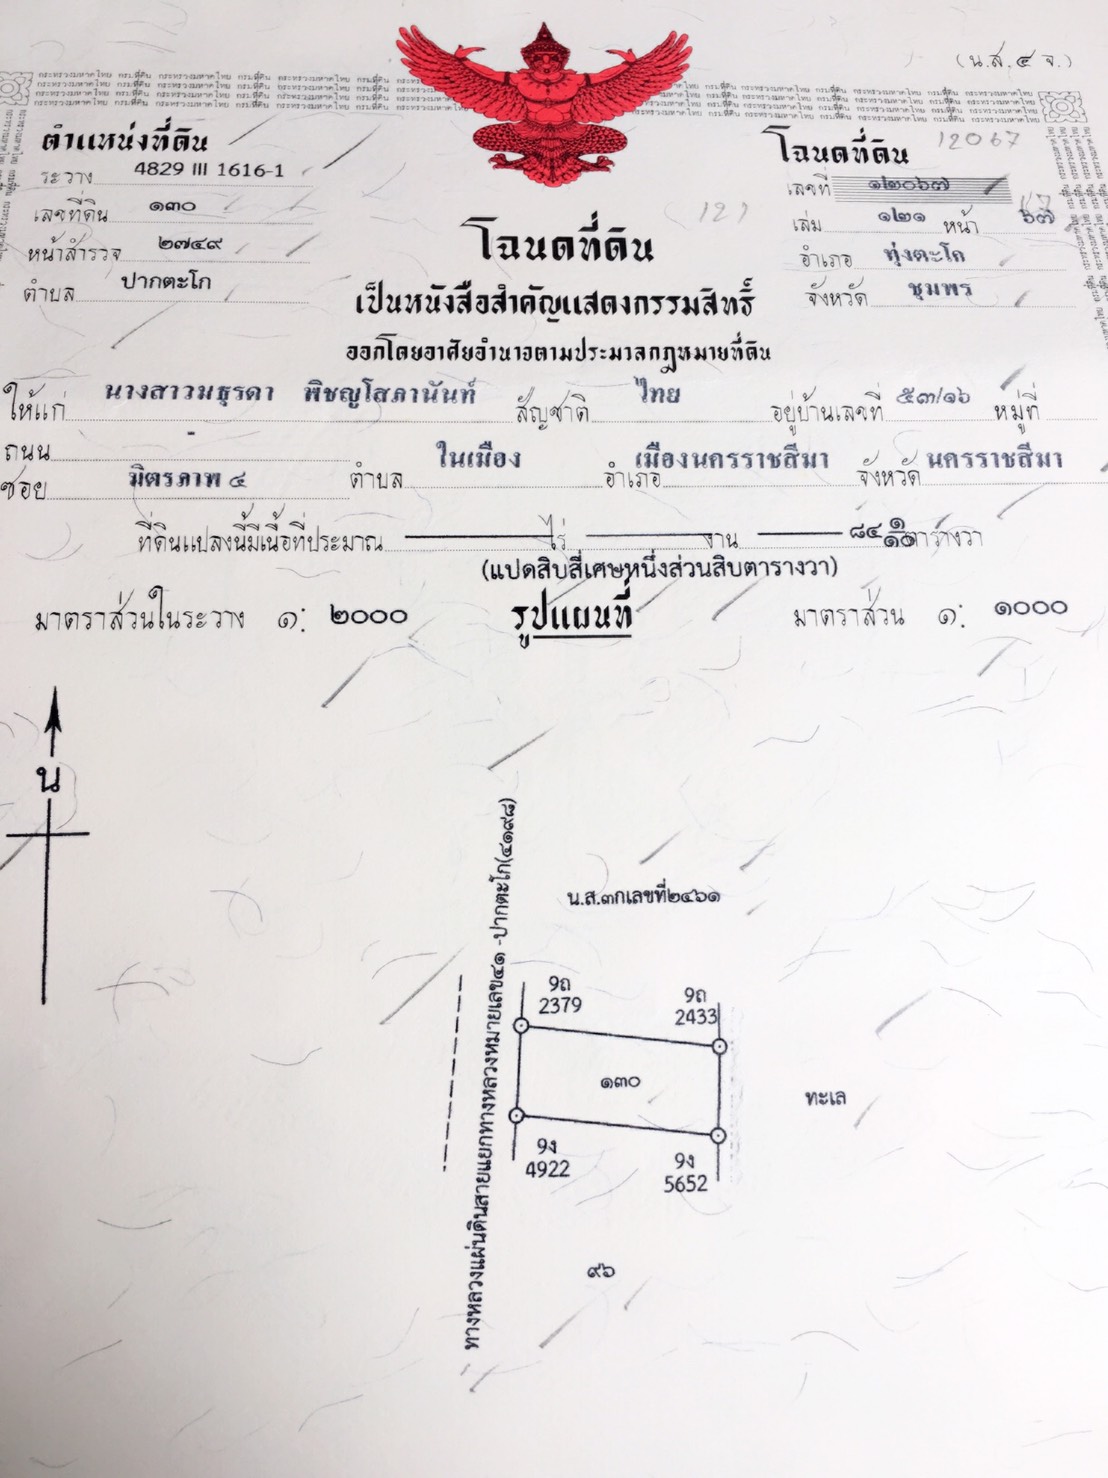 (น.ส.๔ จ.)
ตำแหน่งที่ดิน
ระวาง 4829 III 1616-1
เลขที่ดิน ๑๓๐
หน้าสำรวจ ๒๗๔๙
ตำบล ปากตะโก
โฉนดที่ดิน 12067
เลขที่ ๑๒๐๖๗
เล่ม ๑๒๑ หน้า ๖๗
อำเภอ ทุ่งตะโก
จังหวัด ชุมพร
(121
67
โฉนดที่ดิน
เป็นหนังสือสำคัญแสดงกรรมสิทธิ์
ออกโดยอาศัยอำนาจตามประมวลกฎหมายที่ดิน
ให้แก่ นางสาวมธุรดา พิชญโสภานันท์ สัญชาติ ไทย อยู่บ้านเลขที่ ๕๓/๑๖ หมู่ที่
ถนน -
ซอย มิตรภาพ ๔ ตำบล ในเมือง อำเภอ เมืองนครราชสีมา จังหวัด นครราชสีมา
ที่ดินแปลงนี้มีเนื้อที่ประมาณ ไร่ งาน ๘๔ ๑/๑๐ ตารางวา
(แปดสิบสี่เศษหนึ่งส่วนสิบตารางวา)
มาตราส่วนในระวาง ๑: ๒๐๐๐ รูปแผนที่ มาตราส่วน ๑: ๑๐๐๐
น
ทางหลวงแผ่นดินสายแยกทางหลวงหมายเลข๔๑ -ปากตะโก(๔๑๙๘)
น.ส.๓กเลขที่๒๔๖๑
9ถ
2379
9ถ
2433
๑๓๐
ทะเล
9ง
4922
9ง
5652
๙๖